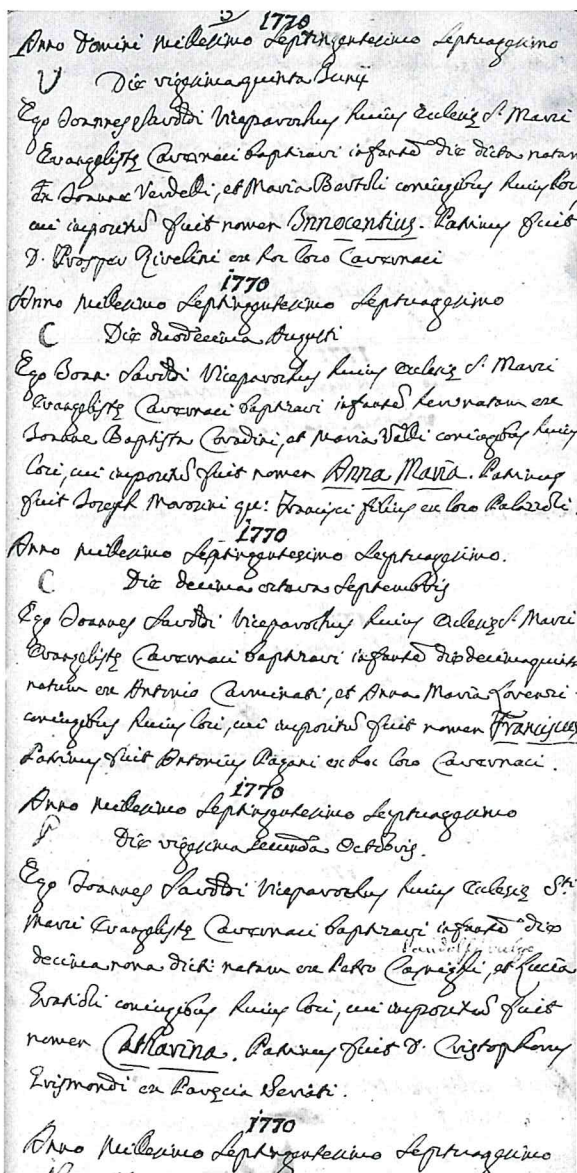 1770
Anno Domini Millesimo Septingentesimo Septuagesimo
V Die vigesimaquinta Junij
Ego Joannes Savoldi Viceparochus huius Ecclesiæ S. Marci
Evangelistę Cavernaci baptizavi infantē die dicta natum
Ex Joanne Vendelli, et Maria Bartoli coniugibus huius loci
cui impositū fuit nomen Innocentius. Patrinus fuit
D. Prosper Rivelini ex hoc loco Cavernaci
1770
Anno Millesimo Septingentesimo Septuagesimo
C Die duodecima Augusti
Ego Joan: Savoldi Viceparochus huius Ecclesiæ S. Marci
Evangelistę Cavernaci baptizavi infantē natam ex
Joanne Baptista Coradini, et Maria Valli coniugibus huius
loci, cui impositū fuit nomen Anna Maria. Patrinus
fuit Joseph Morosini qu: Francisci filius ex loco Palazzoli.
1770
Anno Millesimo Septingentesimo Septuagesimo.
C Die decima octava Septembris
Ego Joannes Savoldi Viceparochus huius Ecclesiæ S. Marci
Evangelistę Cavernaci baptizavi infantē die decimaquinta
natum ex Antonio Carminati, et Anna Maria Lorenzi
coniugibus huius loci, cui impositū fuit nomen Franciscus
Patrinus fuit Antonius Pagani ex hoc loco Cavernaci.
1770
Anno Millesimo Septingentesimo Septuagesimo
Die vigesima secunda Octobris.
Ego Joannes Savoldi Viceparochus huius Ecclesiæ Sti
Marci Evangelistę Cavernaci baptizavi infantē die
decima nona dicti natam ex Petro et Lucia
coniugibus huius loci, cui impositū fuit
nomen Catharina. Patrinus fuit D. Cristophorus
Grismondi ex
1770
Anno Millesimo Septingentesimo Septuagesimo